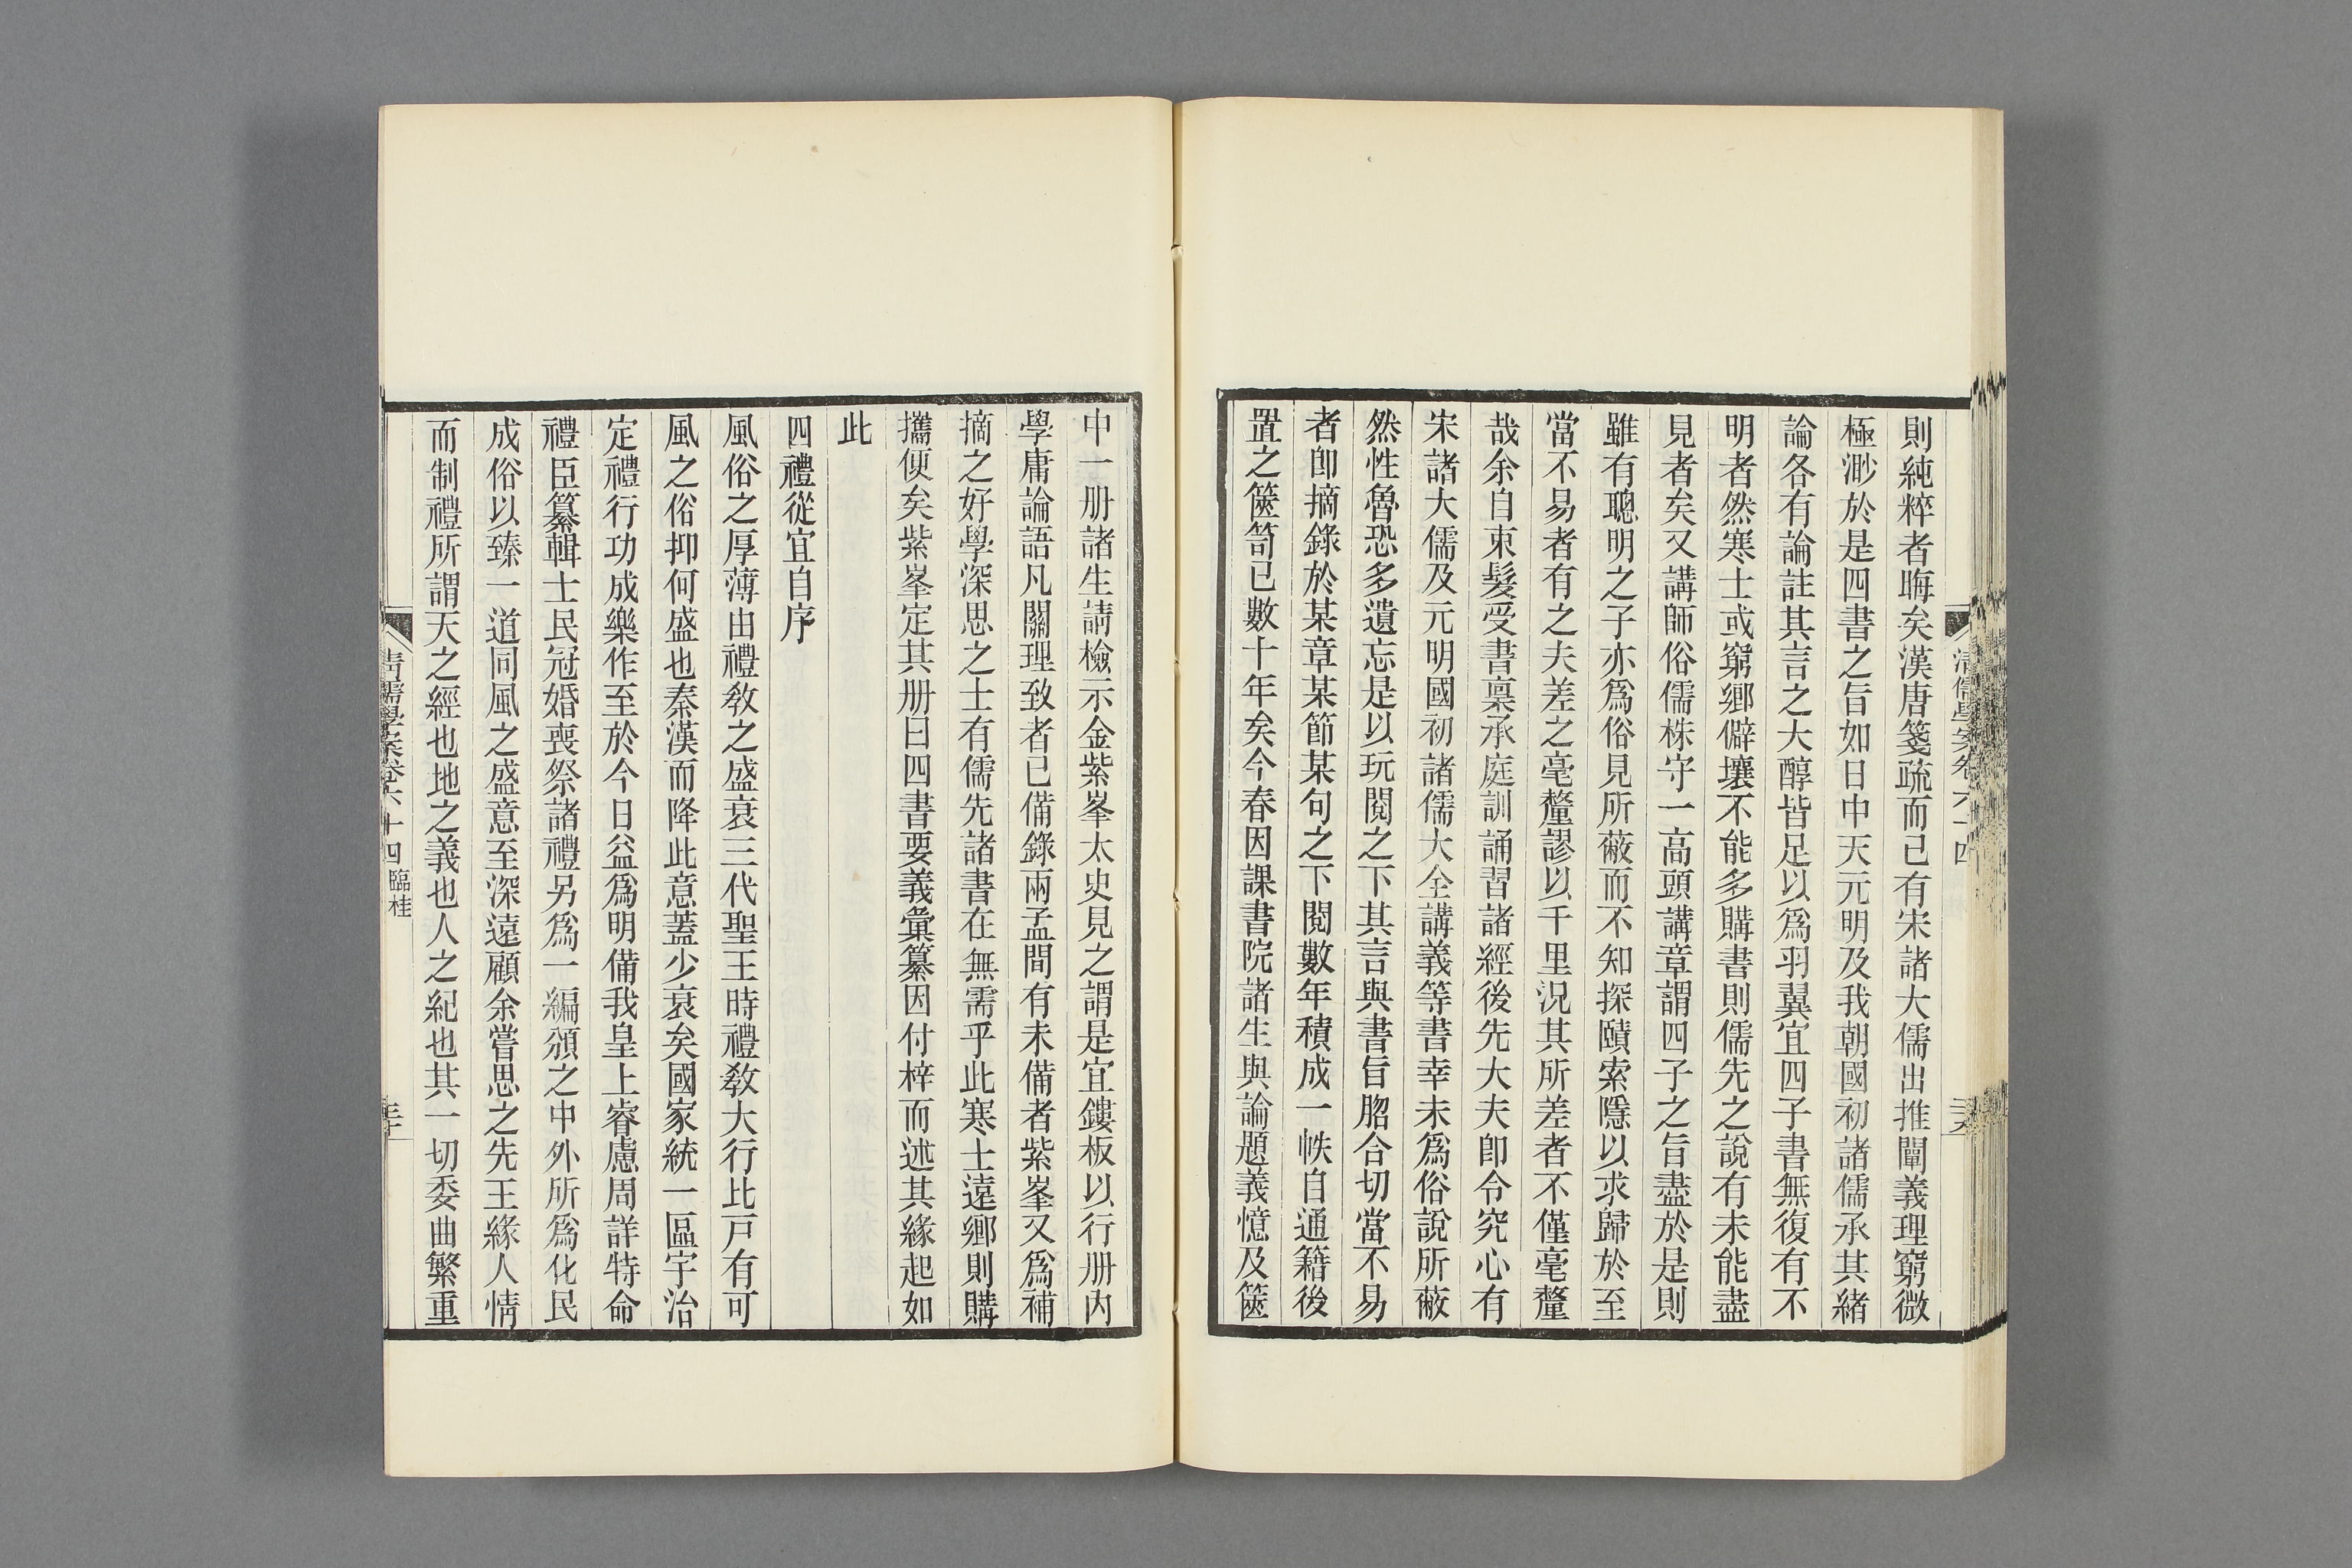 則純粹者晦矣漢唐箋疏而已有宋諸大儒出推闡義理窮微
極渺於是四書之旨如日中天元明及我朝國初諸儒承其緒
論各有論註其言之大醇皆足以爲羽翼宜四子書無復有不
明者然寒士或窮鄉僻壤不能多購書則儒先之說有未能盡
見者矣又講師俗儒株守一高頭講章謂四子之旨盡於是則
雖有聰明之子亦爲俗見所蔽而不知探賾索隱以求歸於至
當不易者有之夫差之毫釐謬以千里況其所差者不僅毫釐
哉余自束髮受書稟承庭訓誦習諸經後先大夫卽令究心有
宋諸大儒及元明國初諸儒大全講義等書幸未爲俗說所蔽
然性魯恐多遺忘是以玩閱之下其言與書旨脗合切當不易
者卽摘錄於某章某節某句之下閱數年積成一帙自通籍後
置之篋笥已數十年矣今春因課書院諸生與論題義憶及篋
中一册諸生請檢示金紫峯太史見之謂是宜鏤板以行册内
學庸論語凡關理致者已備錄兩孟間有未備者紫峯又爲補
摘之好學深思之士有儒先諸書在無需乎此寒士遠鄉則購
攜便矣紫峯定其册曰四書要義彙纂因付梓而述其緣起如
此
四禮從宜自序
風俗之厚薄由禮敎之盛衰三代聖王時禮敎大行比戸有可
風之俗抑何盛也秦漢而降此意蓋少衰矣國家統一區宇治
定禮行功成樂作至於今日益爲明備我皇上睿慮周詳特命
禮臣纂輯士民冠婚喪祭諸禮另爲一編頒之中外所爲化民
成俗以臻一道同風之盛意至深遠顧余嘗思之先王緣人情
而制禮所謂天之經也地之義也人之紀也其一切委曲繁重
清儒學案卷六十四 臨桂
三十